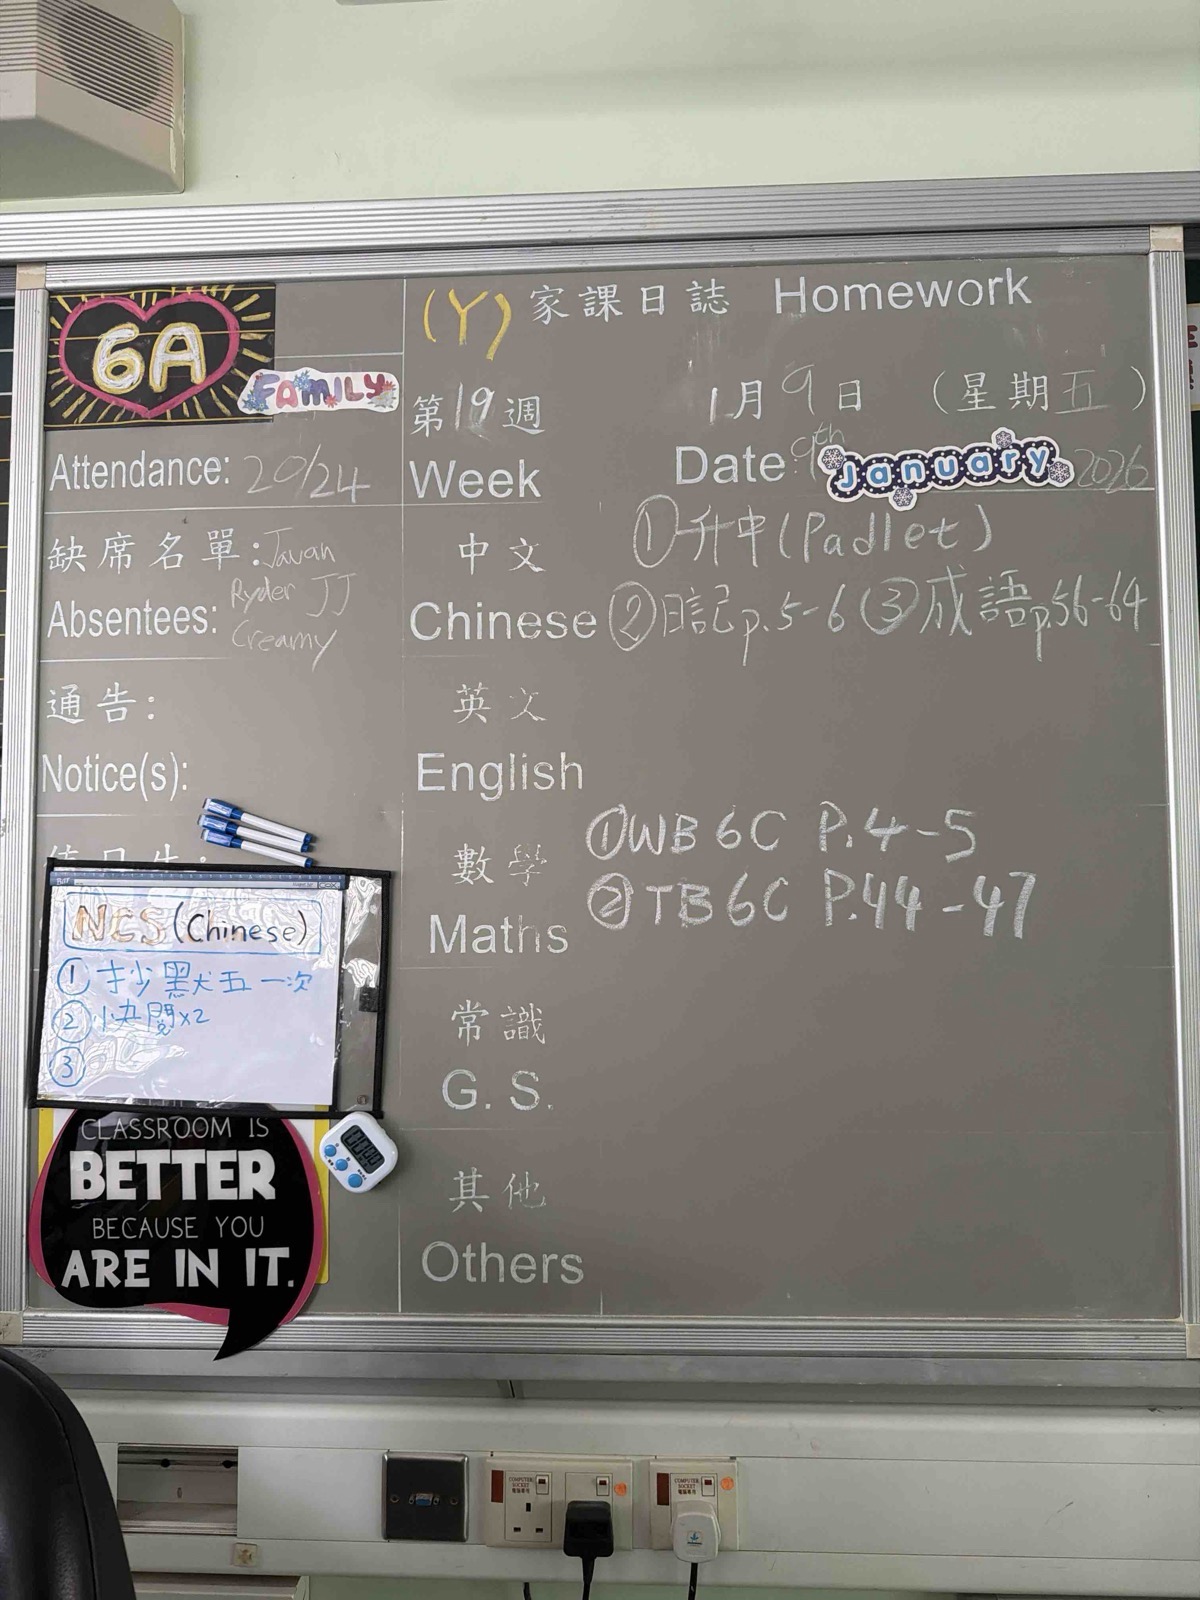 6A
FAMILY
(Y) 家課日誌 Homework
第19週 1月9日 (星期五)
Week Date 9th January 2026
Attendance: 20/24
缺席名單: Javan
Ryder JJ
Absentees: Creamy
通告:
Notice(s):
值日生:
中文 ①升中(Padlet)
Chinese ②日記p.5-6 ③成語p.56-64
英文
English
數學 ①WB 6C P.4-5
Maths ②TB 6C P.44-47
常識
G. S.
其他
Others
NCS (Chinese)
① 抄默五一次
② 快閱x2
③
CLASSROOM IS
BETTER
BECAUSE YOU
ARE IN IT.
COMPUTER SOCKET
COMPUTER SOCKET